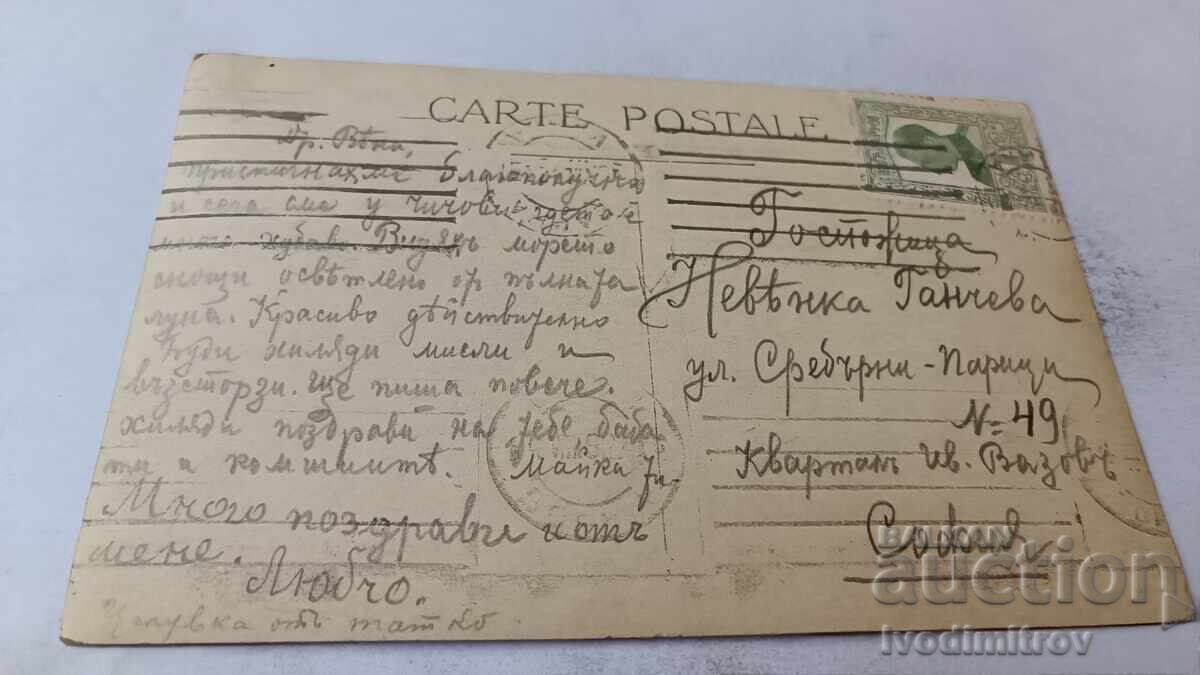 CARTE POSTALE
Др. Вѣна,
пристигнахме благополучно
и сега сме у чичови, дето е
много хубаво. Видѣхъ морето
снощи освѣтлено от пълната
луна. Красиво действително
Буди хиляди мисли и
възторзи. Ще пиша повече.
Хиляди поздрави на тебе, баба
ти и комшиитѣ.
Майка ти.
Много поздрави и отъ
мене.
Любчо.
Целувка отъ татко
Госпожица
Невѣнка Ганчева
ул. Сребърни-Парици
№ 49
Кварталъ Ив. Вазовъ
София
BALKAN
auction
Ivodimitrov